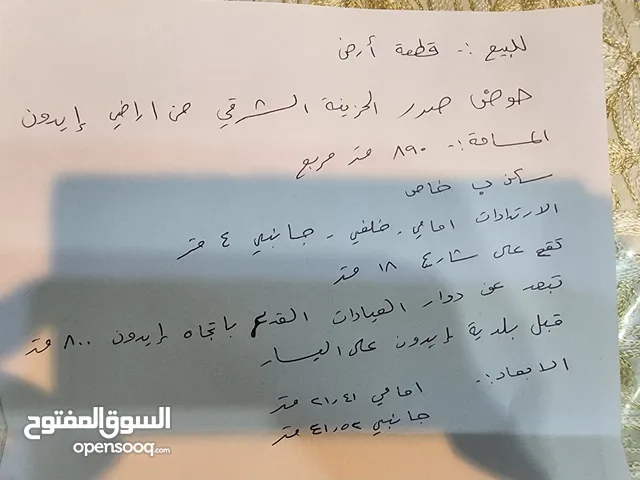 للبيع :- قطعة أرض
حوض صدر الحزينة الشرقي من اراضي إيدون
المساحة :- ٨٩٠ متر مربع
سكن ب خاص
الارتدادات امامي - خلفي - جانبي ٤ متر
تقع على شارع ١٨ متر
تبعد عن دوار العيادات القديم باتجاه إيدون ٨٠٠ متر
قبل بلدية إيدون على اليسار
الابعاد :- امامي ٢١٫٤١ متر
جانبي ٤١٫٥٢ متر
السوق المفتوح
opensooq.com